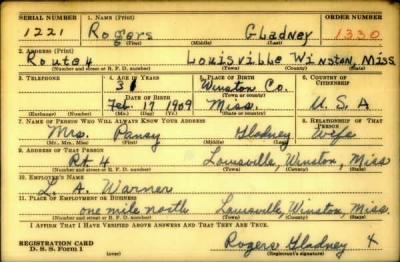 SERIAL NUMBER 1. NAME (Print) ORDER NUMBER
1221 Rogers Gladney 1330
(First) (Middle) (Last)
2. ADDRESS (Print)
Route 4 Louisville Winston, Miss.
(Number and street or R. F. D. number) (Town) (County) (State)
3. TELEPHONE 4. AGE IN YEARS 5. PLACE OF BIRTH 6. COUNTRY OF CITIZENSHIP
31 Winston Co.
DATE OF BIRTH (Town or county)
Feb 17 1909 Miss. U.S.A
(Exchange) (Number) (Mo.) (Day) (Yr.) (State or country)
7. NAME OF PERSON WHO WILL ALWAYS KNOW YOUR ADDRESS 8. RELATIONSHIP OF THAT PERSON
Mrs. Pansy Gladney Wife
(Mr., Mrs., Miss) (First) (Middle) (Last)
9. ADDRESS OF THAT PERSON
Rt 4 Louisville, Winston, Miss
(Number and street or R. F. D. number) (Town) (County) (State)
10. EMPLOYER'S NAME
L. A. Warner
11. PLACE OF EMPLOYMENT OR BUSINESS
one mile north Louisville, Winston, Miss.
(Number and street or R. F. D. number) (Town) (County) (State)
I AFFIRM THAT I HAVE VERIFIED ABOVE ANSWERS AND THAT THEY ARE TRUE.
REGISTRATION CARD Rogers Gladney X
D. S. S. Form 1 (over) (Registrant's signature)